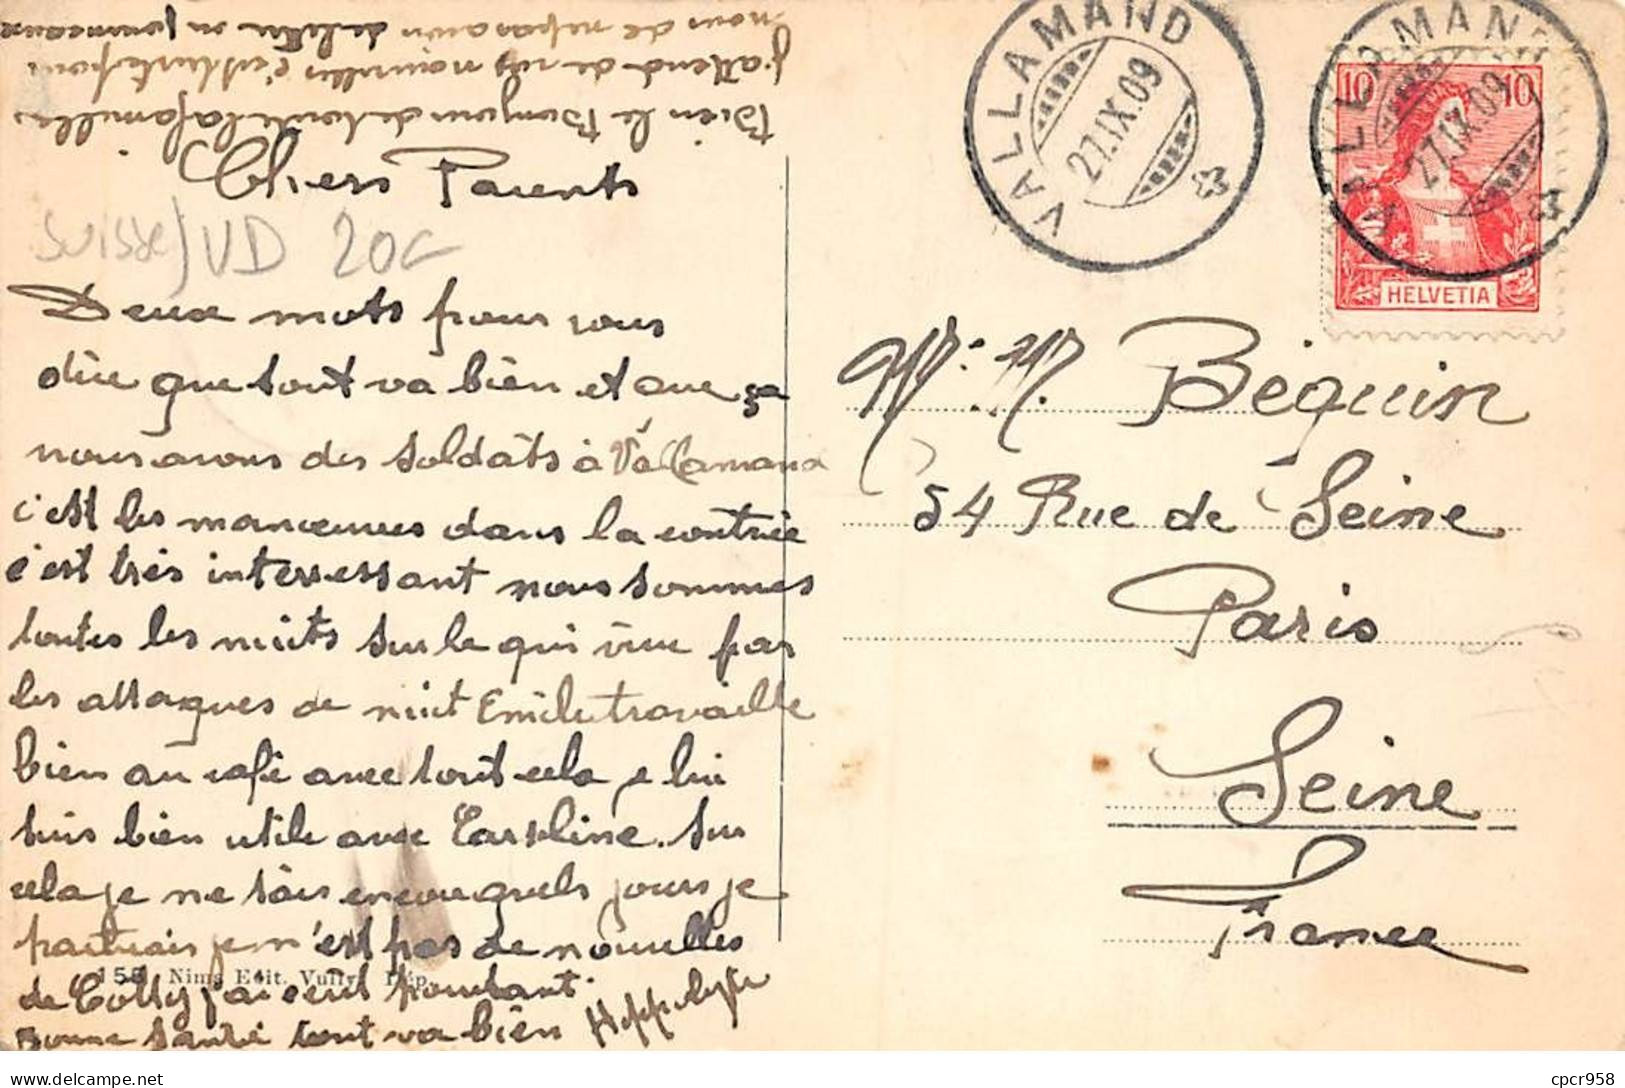 Chers Parents
Suisse/VD 20c
Deux mots pour vous
dire que tout va bien et que ça
nous avons des soldats à Vallamand
c'est les manoeuvres dans la contrée
c'est très interressant nous sommes
toutes les nuits sur le qui vive par
les attaques de nuit Emile travaille
bien au café avec tout cela je lui
suis bien utile avec Caroline. Sur
cela je ne sais encore quels jours je
partirais je n'est pas de nouvelles
de Cotty j'ai écrit pourtant.
Bonne santé tout va bien Hyppolyte
Bien le Bonjour de toute la famille
j'attend de vos nouvelles c'est triste pour
nous de ne pas avoir de lettre ou journeaux
155 Nims Edit. Vully Dép.
VALLAMAND
27.IX.09
VALLAMAND
27.IX.09
10 10
HELVETIA
Mr. M. Béquin
54 Rue de Seine
Paris
Seine
France
cpcr958